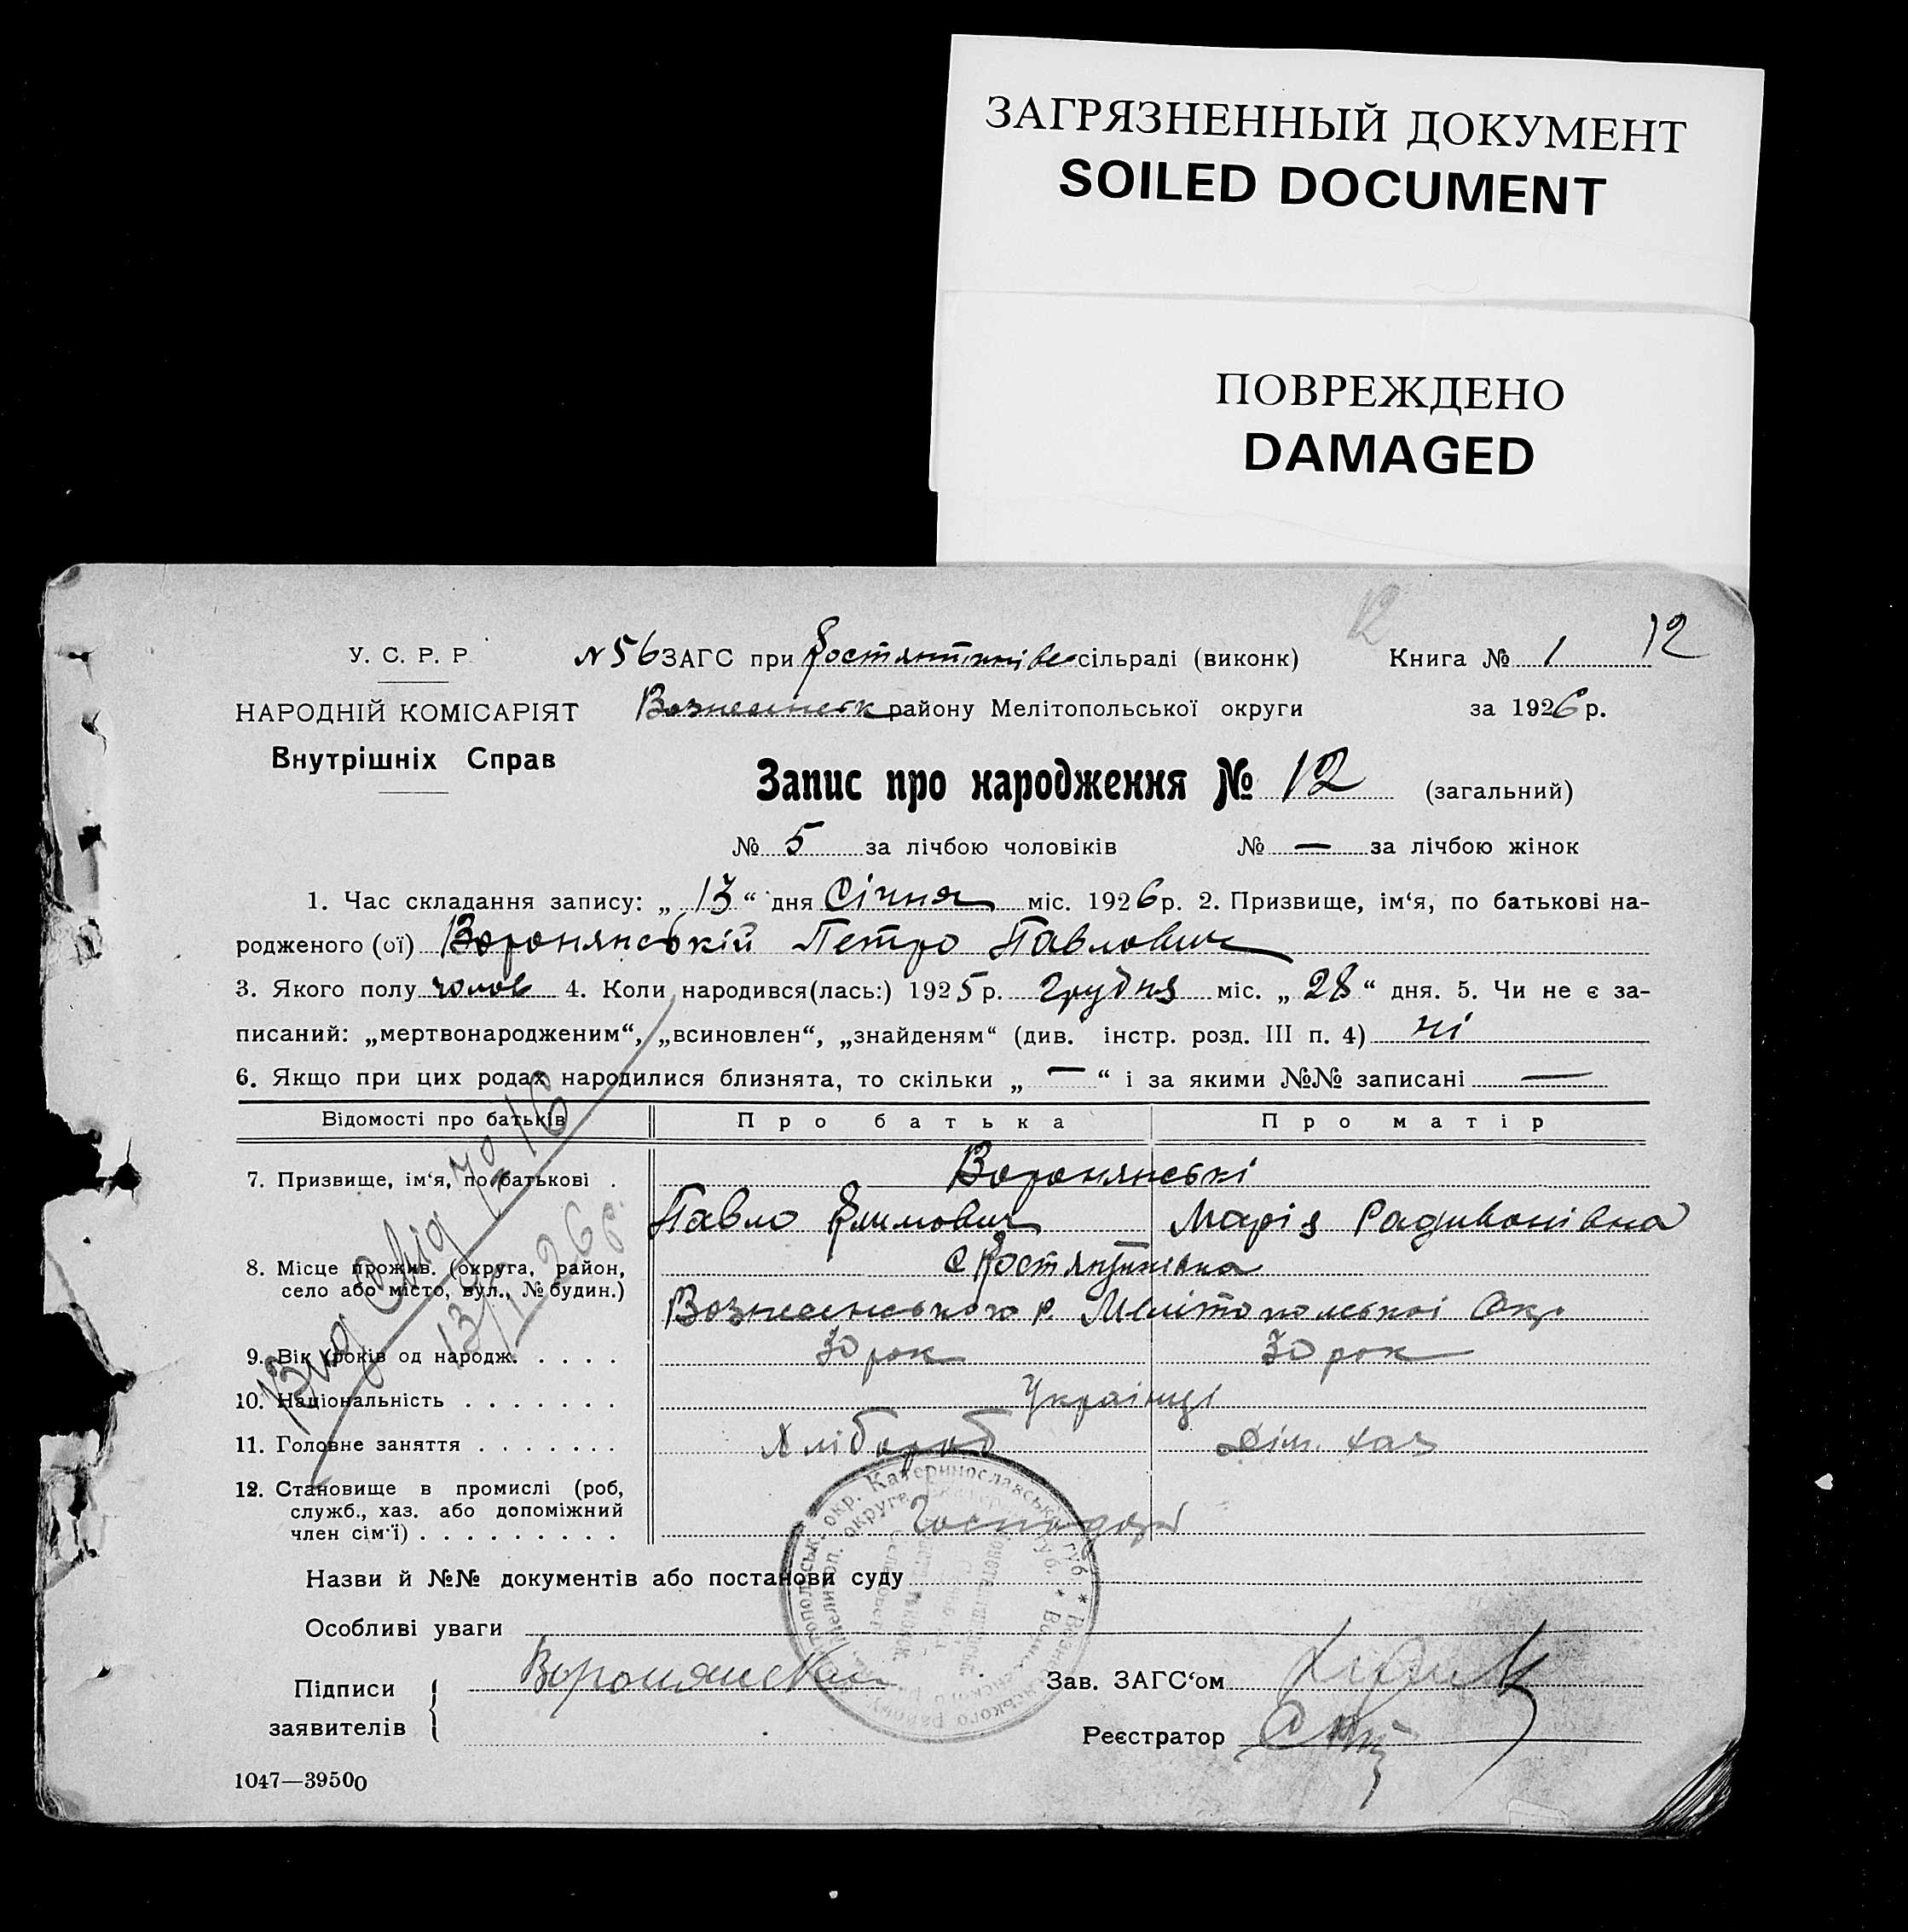 ЗАГРЯЗНЕННЫЙ ДОКУМЕНТ
SOILED DOCUMENT
ПОВРЕЖДЕНО
DAMAGED
12
У. С. Р. Р. № 56 ЗАГС при Костянтинівс сільраді (виконк) Книга № 1 12
НАРОДНІЙ КОМІСАРІЯТ Вознесенськ району Мелітопольської округи за 1926 р.
Внутрішніх Справ
Запис про народження № 12 (загальний)
№ 5 за лічбою чоловіків № — за лічбою жінок
1. Час складання запису: „ 13 “ дня Січня міс. 1926 р. 2. Призвище, ім‘я, по батькові на-
родженого (ої) Воронянській Петро Павлович
3. Якого полу чолов 4. Коли народився(лась:) 1925 р. Грудня міс. „ 28 “ дня. 5. Чи не є за-
писаний: „мертвонародженим“, „всиновлен“, „знайденям“ (див. інстр. розд. III п. 4) ні
6. Якщо при цих родах народилися близнята, то скільки „ — “ і за якими №№ записані —
Відомості про батьків Про батька Про матір
7. Призвище, ім‘я, по батькові . Воронянські
Павло Климович Марія Радивонівна
8. Місце прожив. (округа, район, с Костянтинівка
село або місто, вул., № будин.) Вознесенського р. Мелітопольскоі Окр
9. Вік (років од народж. . . . . 30 рок 30 рок
10. Національність . . . . . . . Украінці
11. Головне заняття . . . . . . . Хлібороб Дім. хаз
12. Становище в промислі (роб,
служб., хаз. або допоміжний
член сім‘ї) . . . . . . . . . Господарі
Назви й №№ документів або постанови суду
Особливі уваги
Підписи Воронянска Зав. ЗАГС‘ом
заявителів Реєстратор
1047—39500
Видано Свід № 16
13/I 26 р.